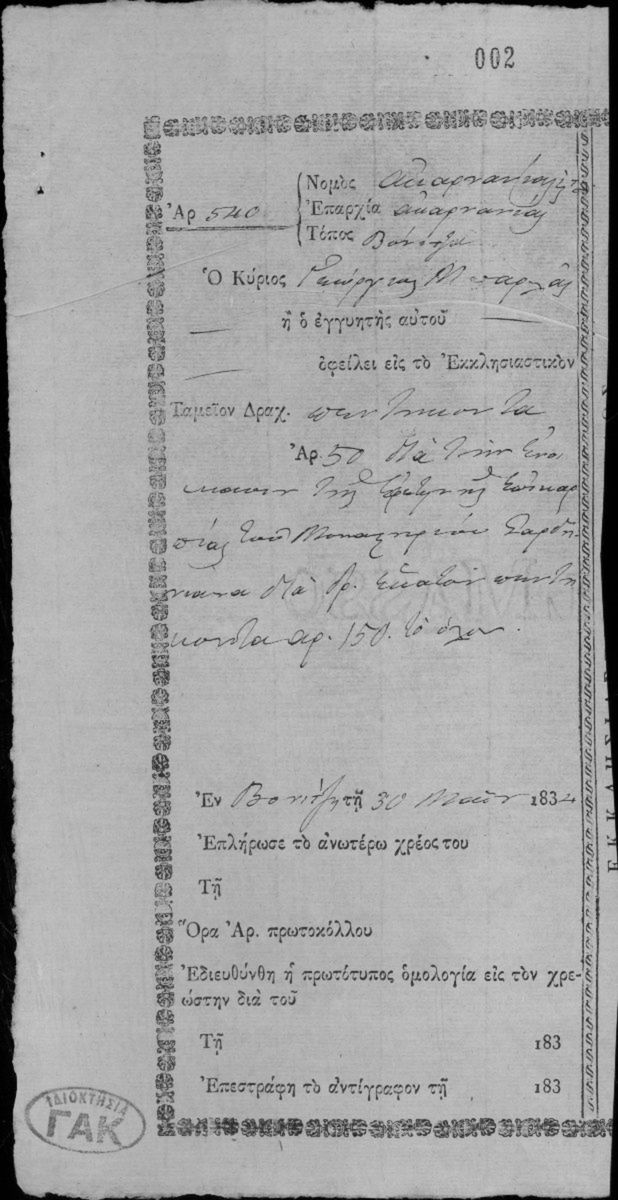 002
Ἀρ 540
Νομὸς
Ἐπαρχία Ακαρνανίας
Τόπος Βόνιτζα
Ὁ Κύριος Γεώργιος
ἢ ὁ ἐγγυητὴς αὐτοῦ
ὀφείλει εἰς τὸ Ἐκκλησιαστικὸν
Ταμεῖον Δραχ. πεντήκοντα
Ἀρ. 50 διὰ τὴν ἐνοι
κίασιν τῆς
πίας τοῦ Μοναστηρίου
διὰ δρ. ἑκατὸν πεντή
κοντα αρ. 150. τὸ ὅλον.
Ἐν Βονίτζῃ τῇ 30 Μαΐου 1834
Ἐπλήρωσε τὸ ἀνωτέρω χρέος του
Τῇ
Ὅρα Ἀρ. πρωτοκόλλου
Ἐδιευθύνθη ἡ πρωτότυπος ὁμολογία εἰς τὸν χρε-
ώστην διὰ τοῦ
Τῇ 183
Ἐπεστράφη τὸ ἀντίγραφον τῇ 183
ΙΔΙΟΚΤΗΣΙΑ
ΓΑΚ